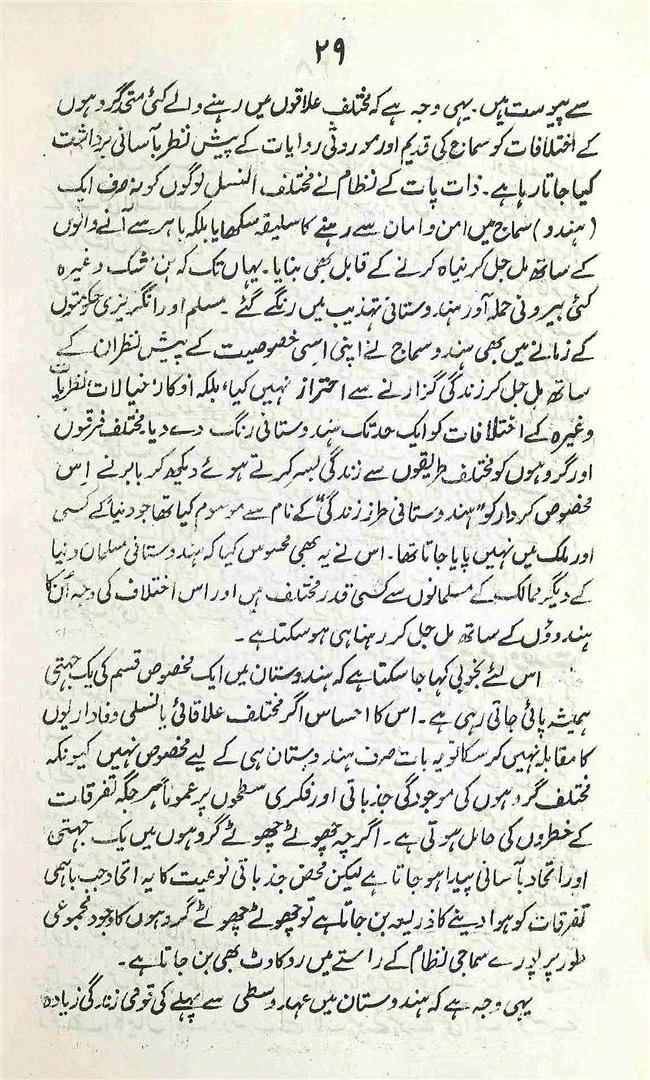 ۲۹
سے پیوست ہیں۔ یہی وجہ ہے کہ مختلف علاقوں میں رہنے والے کئی متحد گروہوں
کے اختلافات کو سماج کی قدیم اور موروثی روایات کے پیش نظر بآسانی برداشت
کیا جاتا رہا ہے۔ ذات پات کے نظام نے مختلف النسل لوگوں کو نہ صرف ایک
(ہندو) سماج میں امن و امان سے رہنے کا سلیقہ سکھایا بلکہ باہر سے آنے والوں
کے ساتھ مل جل کر نباہ کرنے کے قابل بھی بنایا۔ یہاں تک کہ ہن، شک وغیرہ
کئی بیرونی حملہ آور ہندوستانی تہذیب میں رنگے گئے۔ مسلم اور انگریزی حکومتوں
کے زمانے میں بھی ہندو سماج نے اپنی اسی خصوصیت کے پیش نظر ان کے
ساتھ مل جل کر زندگی گزارنے سے احتراز نہیں کیا، بلکہ افکار، خیالات، نظریات
وغیرہ کے اختلافات کو ایک حد تک ہندوستانی رنگ دے دیا۔ مختلف فرقوں
اور گروہوں کو مختلف طریقوں سے زندگی بسر کرتے ہوئے دیکھ کر بابر نے اس
مخصوص کردار کو "ہندوستانی طرز زندگی" کے نام سے موسوم کیا تھا جو دنیا کے کسی
اور ملک میں نہیں پایا جاتا تھا۔ اس نے یہ بھی محسوس کیا کہ ہندوستانی مسلمان دنیا
کے دیگر ممالک کے مسلمانوں سے کسی قدر مختلف ہیں اور اس اختلاف کی وجہ اُن کا
ہندوؤں کے ساتھ مل جل کر رہنا ہی ہو سکتا ہے۔
اس لئے بخوبی کہا جا سکتا ہے کہ ہندوستان میں ایک مخصوص قسم کی یک جہتی
ہمیشہ پائی جاتی رہی ہے۔ اس کا احساس اگر مختلف علاقائی یا نسلی وفاداریوں
کا مقابلہ نہیں کر سکا تو یہ بات صرف ہندوستان ہی کے لیے مخصوص نہیں کیونکہ
مختلف گروہوں کی موجودگی جذباتی اور فکری سطحوں پر عموماً ہر جگہ تفرقات
کے خطروں کی حامل ہوتی ہے۔ اگرچہ چھوٹے چھوٹے گروہوں میں یک جہتی
اور اتحاد بآسانی پیدا ہو جاتا ہے لیکن محض جذباتی نوعیت کا یہ اتحاد جب باہمی
تفرقات کو ہوا دینے کا ذریعہ بن جاتا ہے تو چھوٹے چھوٹے گروہوں کا وجود مجموعی
طور پر پورے سماجی نظام کے راستے میں رکاوٹ بھی بن جاتا ہے۔
یہی وجہ ہے کہ ہندوستان میں عہد وسطی سے پہلے کی قومی زندگی زیادہ